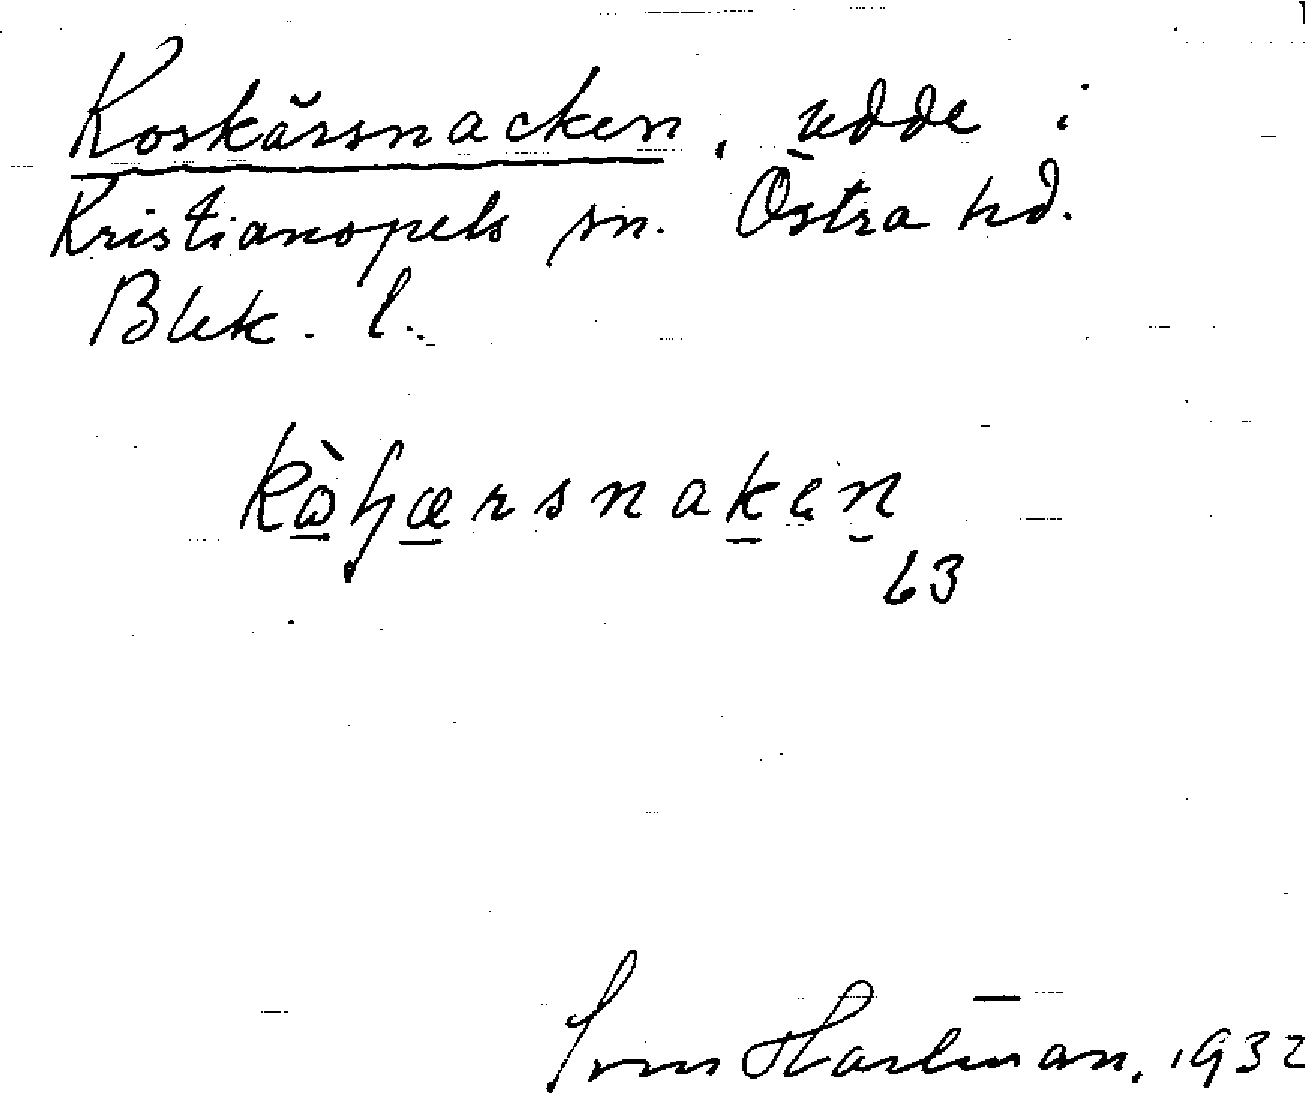 Koskärsnacken, udde i
Kristianopels sn. Östra hd.
Blek. l.
63
Sven Hartman, 1932